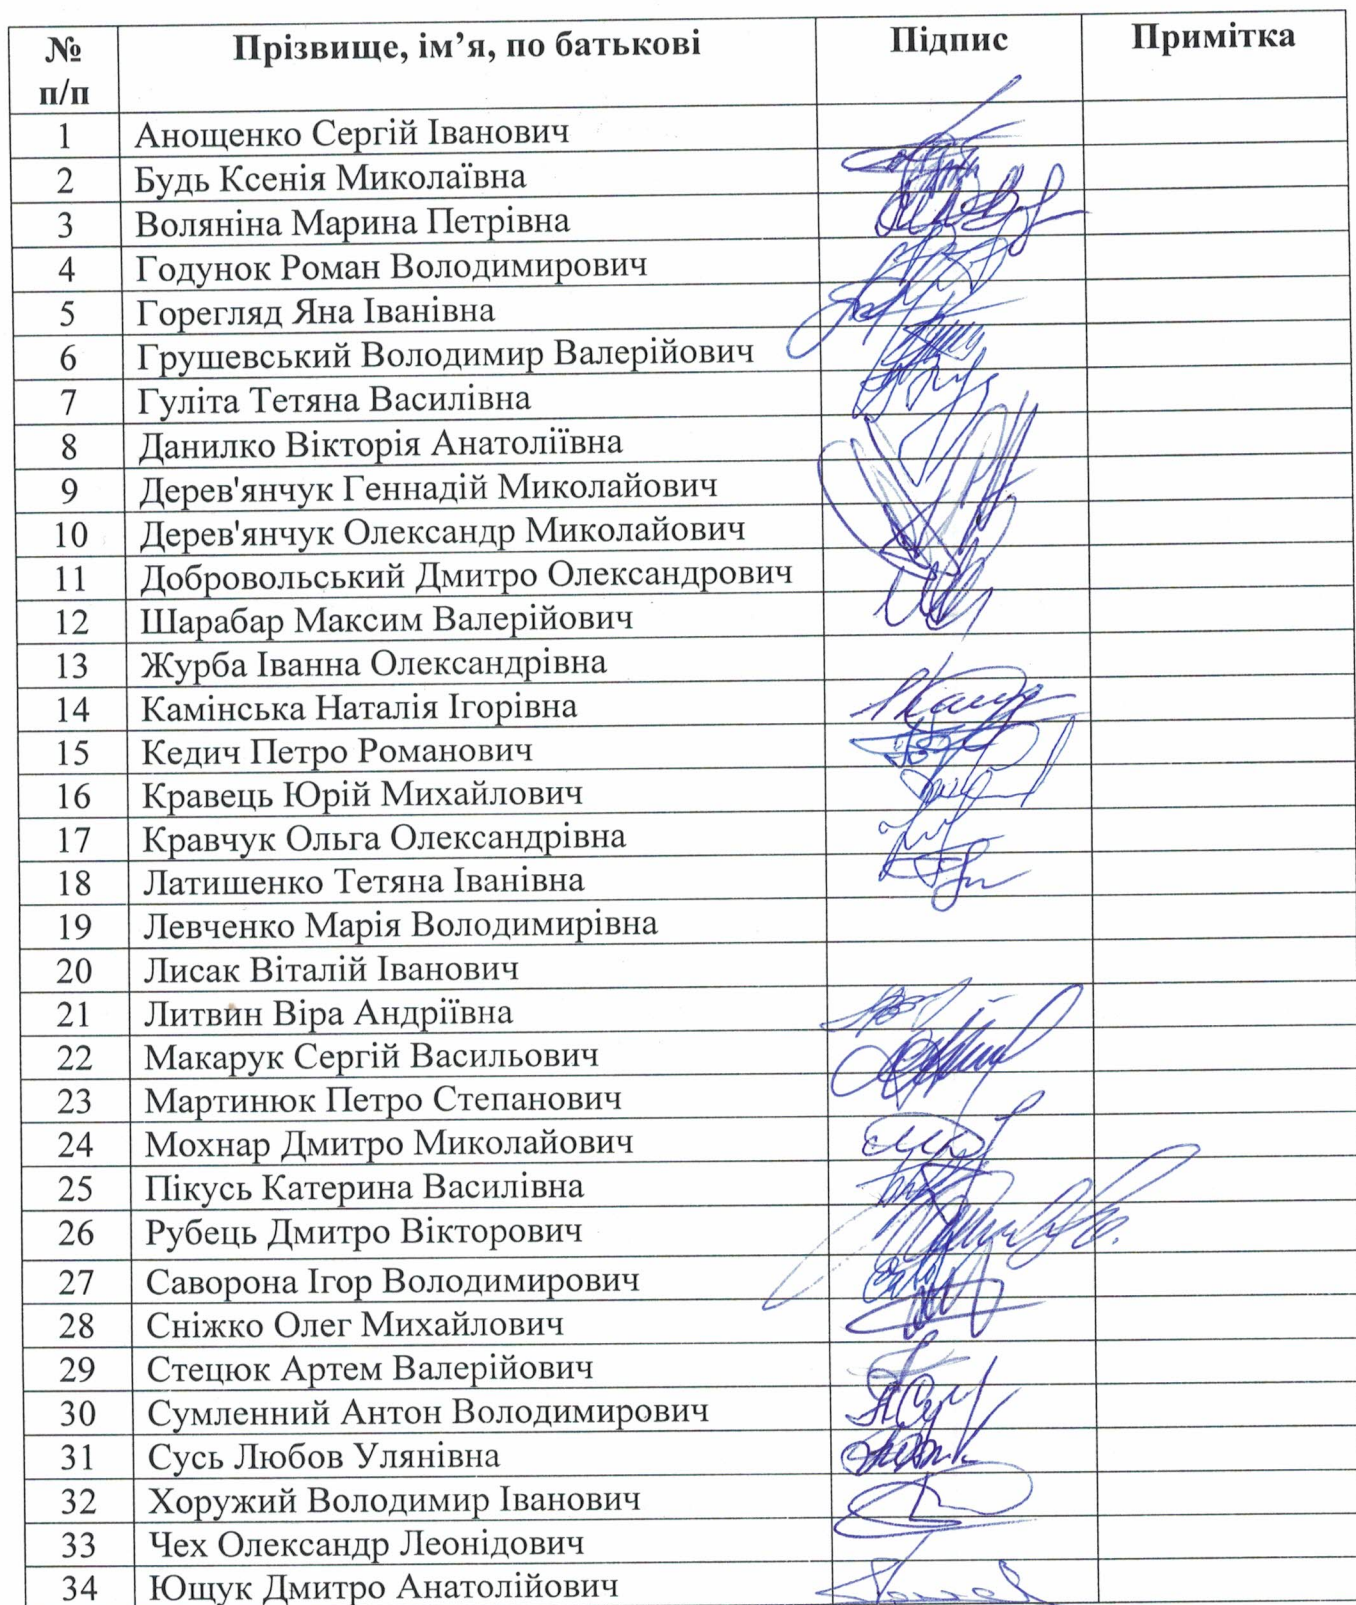 № п/п Прізвище, ім’я, по батькові Підпис Примітка
1 Анощенко Сергій Іванович
2 Будь Ксенія Миколаївна
3 Воляніна Марина Петрівна
4 Годунок Роман Володимирович
5 Горегляд Яна Іванівна
6 Грушевський Володимир Валерійович
7 Гуліта Тетяна Василівна
8 Данилко Вікторія Анатоліївна
9 Дерев'янчук Геннадій Миколайович
10 Дерев'янчук Олександр Миколайович
11 Добровольський Дмитро Олександрович
12 Шарабар Максим Валерійович
13 Журба Іванна Олександрівна
14 Камінська Наталія Ігорівна
15 Кедич Петро Романович
16 Кравець Юрій Михайлович
17 Кравчук Ольга Олександрівна
18 Латишенко Тетяна Іванівна
19 Левченко Марія Володимирівна
20 Лисак Віталій Іванович
21 Литвин Віра Андріївна
22 Макарук Сергій Васильович
23 Мартинюк Петро Степанович
24 Мохнар Дмитро Миколайович
25 Пікусь Катерина Василівна
26 Рубець Дмитро Вікторович
27 Саворона Ігор Володимирович
28 Сніжко Олег Михайлович
29 Стецюк Артем Валерійович
30 Сумленний Антон Володимирович
31 Сусь Любов Улянівна
32 Хоружий Володимир Іванович
33 Чех Олександр Леонідович
34 Ющук Дмитро Анатолійович